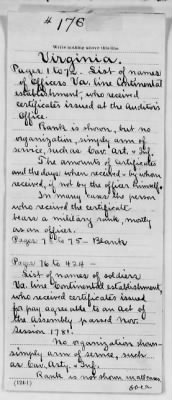 # 176
Write nothing above this line
Virginia.
Pages 1 to 72. List of names
of Officers Va. line Continental
establishment, who received
certificates issued at the Auditor's
Office.
Rank is shown, but no
organization, simply arm of
service, such as Cav. Art. & Inf.
The amounts of certificates
and the days when received - by whom
received, if not by the officer himself.
In many cases the person
who received the certificate
bears a military rank, mostly
as an officer.
Pages 73 to 75 - Blank
Pages 76 to 424 -
List of names of soldiers
Va. line Continental establishment,
who received certificates issued
for pay agreeable to an Act of
the Assembly passed Nov.
Session 1781.
No organization shown
simply arm of service, such
as Cav. Arty. & Inf.
Rank is not shown in all cases